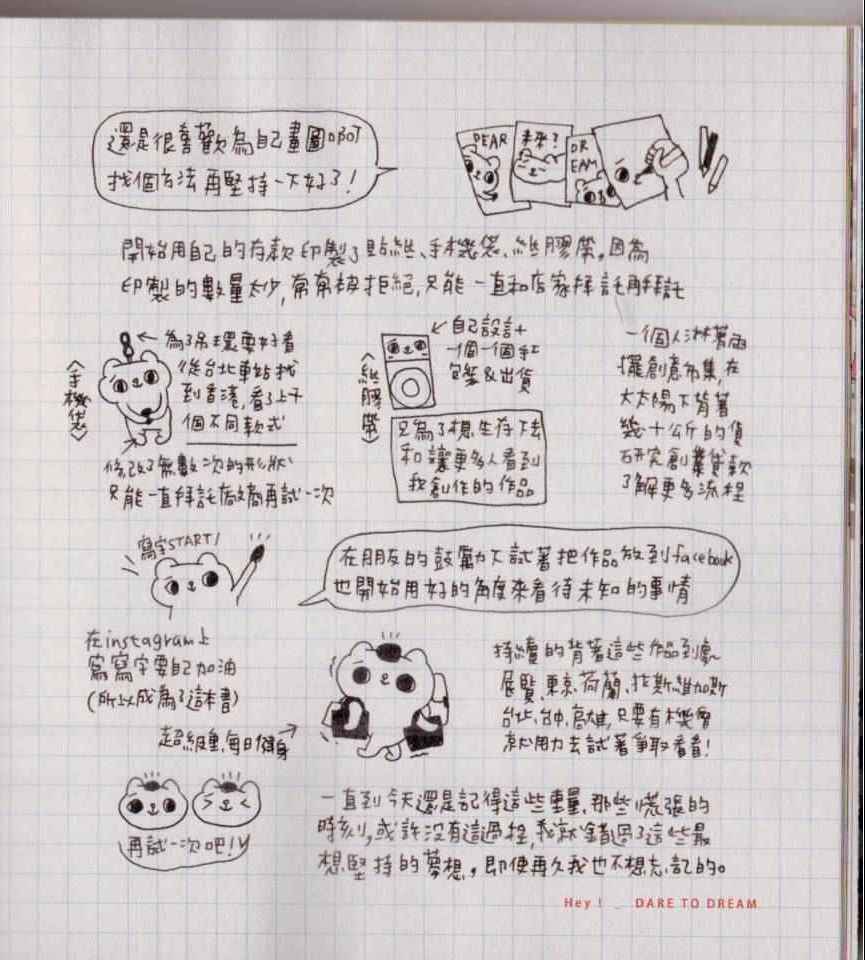 還是很喜歡為自己畫圖啊!
找個方法再堅持一下好了!
DEAR
未來?
DR
EAM
開始用自己的存款印製了貼紙、手機袋、紙膠帶,因為
印製的數量太少,常常被拒絕,只能一直和店家拜託再拜託
<手機袋>
←為了吊環要好看
從台北車站找
到香港,看了上千
個不同款式
修改了無數次的形狀
只能一直拜託廠商再試一次
<紙膠帶>
自己設計+
一個一個手工
包裝&出貨
只為了想生存下去
和讓更多人看到
我創作的作品
一個人淋著雨
擺創意市集,在
大太陽下背著
幾十公斤的貨
研究創業貸款
了解更多流程
寫字START!
在朋友的鼓勵下試著把作品放到facebook
也開始用好的角度來看待未知的事情
在instagram上
寫寫字要自己加油
(所以成為了這本書)
超級重,每日健身
持續的背著這些作品到處
展覽,東京、荷蘭、拉斯維加斯
台北、台中、高雄,只要有機會
就用力去試著爭取看看!
再試一次吧!
一直到今天還是記得這些重量,那些慌張的
時刻,或許沒有這過程,我就錯過了這些最
想堅持的夢想。即便再久我也不想忘記的。
Hey ! _ DARE TO DREAM